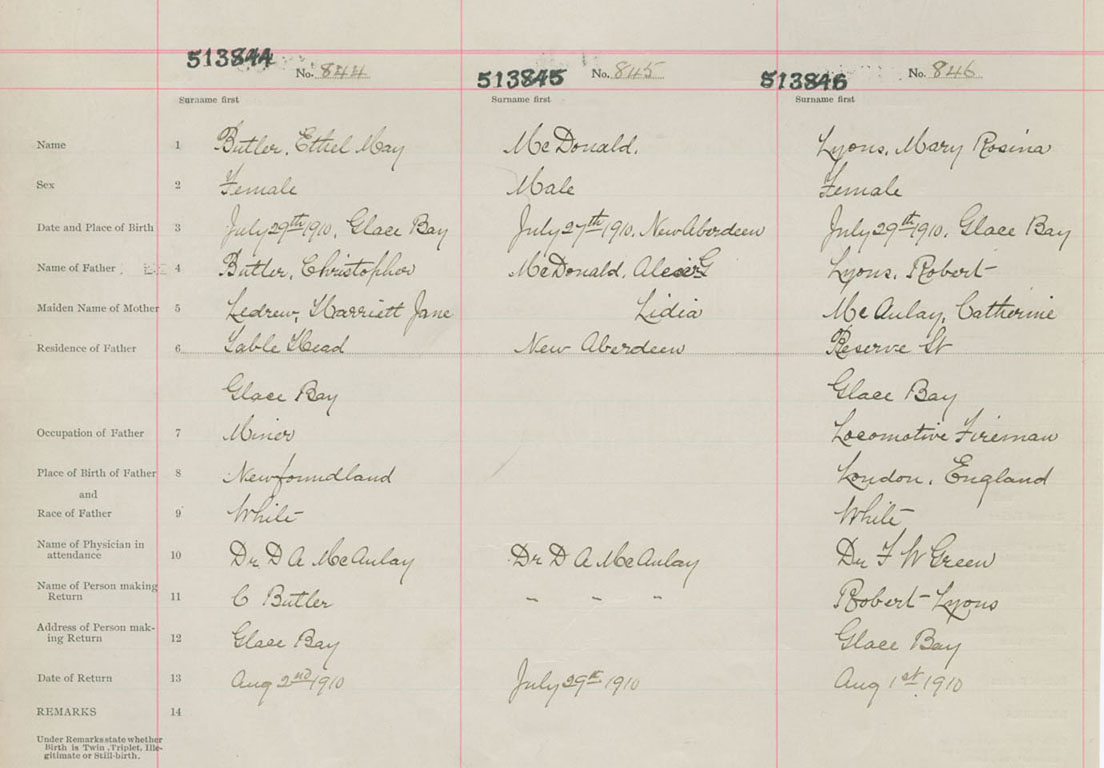 513844 No. 844 513845 No. 845 513846 No. 846
Surname first Surname first Surname first
Name 1 Butler, Ethel May McDonald. Lyons, Mary Rosina
Sex 2 Female Male Female
Date and Place of Birth 3 July 29th 1910, Glace Bay July 27th 1910, New Aberdeen July 29th 1910, Glace Bay
Name of Father 4 Butler, Christopher McDonald, Lyons, Robert
Maiden Name of Mother 5 Ledrew, Harriett Jane Lidia McAulay, Catherine
Residence of Father 6 Sable Head New Aberdeen Reserve St
Glace Bay Glace Bay
Occupation of Father 7 Miner Locomotive Fireman
Place of Birth of Father 8 Newfoundland London, England
and
Race of Father 9 White White
Name of Physician in
attendance 10 Dr D A McAulay Dr D A McAulay Dr F W Green
Name of Person making
Return 11 C Butler " " " Robert Lyons
Address of Person mak-
ing Return 12 Glace Bay Glace Bay
Date of Return 13 Aug 2nd 1910 July 29th 1910 Aug 1st 1910
REMARKS 14
Under Remarks state whether
Birth is Twin, Triplet, Ille-
gitimate or Still-birth.